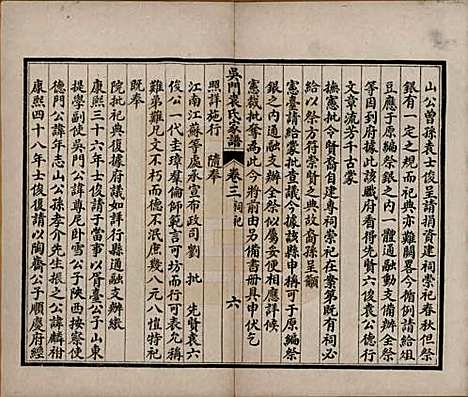 山公曾孫袁士俊呈請捐資建祠崇祀春秋但祭
銀有一定之規而祀典亦難闕畧今循例請以
豆應于原編祭之內一體通融動支備辦
等因到府據此該職府看得先賢六俊袁公德行
文章流芳千古蒙
憲允袁令茂英自建專祠崇祀在案第既有祠必
以祭方符崇賢之典故裔孫呈籲
憲臺請給蒙批查議今據該縣申稱可于原編祭
銀之內通融支辦全祭似屬妥便相應詳候
憲裁批奪爲此今將前由另備書冊具申伏乞
照詳施行 隨奉
吳門袁氏家譜 卷三 祠祀 六
江南江蘇等處承宣布政司劉 批 先賢袁六
俊公一代圭璋羣倫師範言可坊而行可表允稱
難弟難兄文不朽而德不泯庶幾八元八愷特祀
既奉
院批祀典復據府議如詳行縣通融支辦繳
康熙三十六年士俊復請于當事以肯臺公子山東
提學副使公諱尊尼卧雪公子陝西按察使
德門公諱年志山公孫孝介先生振之公諱麟柑
康熙四十八年士俊復請以陶齋公子順慶府經